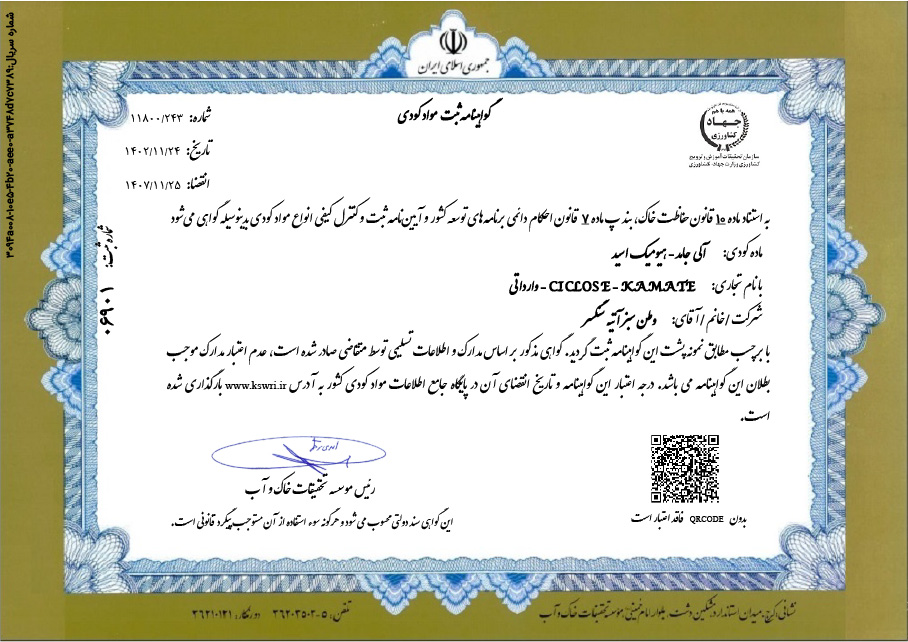 جمهوری اسلامی ایران
گواهینامه ثبت مواد کودی
شماره: ۱۱۸۰۰/۲۴۳
تاریخ: ۱۴۰۲/۱۱/۲۴
انقضا: ۱۴۰۷/۱۱/۲۵
همه با هم
جهاد
کشاورزی
سازمان تحقیقات، آموزش و ترویج
کشاورزی وزارت جهاد کشاورزی
به استناد ماده ۱۰ قانون حفاظت خاک، بند پ ماده ۷ قانون احکام دائمی برنامه های توسعه کشور و آیین نامه ثبت و کنترل کیفی انواع مواد کودی بدینوسیله گواهی می شود
ماده کودی: آلی جامد - هیومیک اسید
با نام تجاری: CICLOSE - KAMATE - وارداتی
شرکت / خانم / آقای: وطن سبز آتیه سنگسر
با برچسب مطابق نمونه پشت این گواهینامه ثبت گردید. گواهی مذکور بر اساس مدارک و اطلاعات تسلیمی توسط متقاضی صادر شده است، عدم اعتبار مدارک موجب
بطلان این گواهینامه می باشد. درجه اعتبار این گواهینامه و تاریخ انقضای آن در پایگاه جامع اطلاعات مواد کودی کشور به آدرس www.kswri.ir بارگذاری شده
است.
شماره ثبت: ۰۶۹۰۱
رئیس موسسه تحقیقات خاک و آب
بدون QRCODE فاقد اعتبار است
این گواهی سند دولتی محسوب می شود و هرگونه سوء استفاده از آن مستوجب پیگرد قانونی است.
نشانی: کرج، میدان استاندارد، مشکین دشت، بلوار امام خمینی، مؤسسه تحقیقات خاک و آب
تلفن: ۵-۳۶۲۰۳۵۰۳ دورنگار: ۳۶۲۱۰۱۲۱